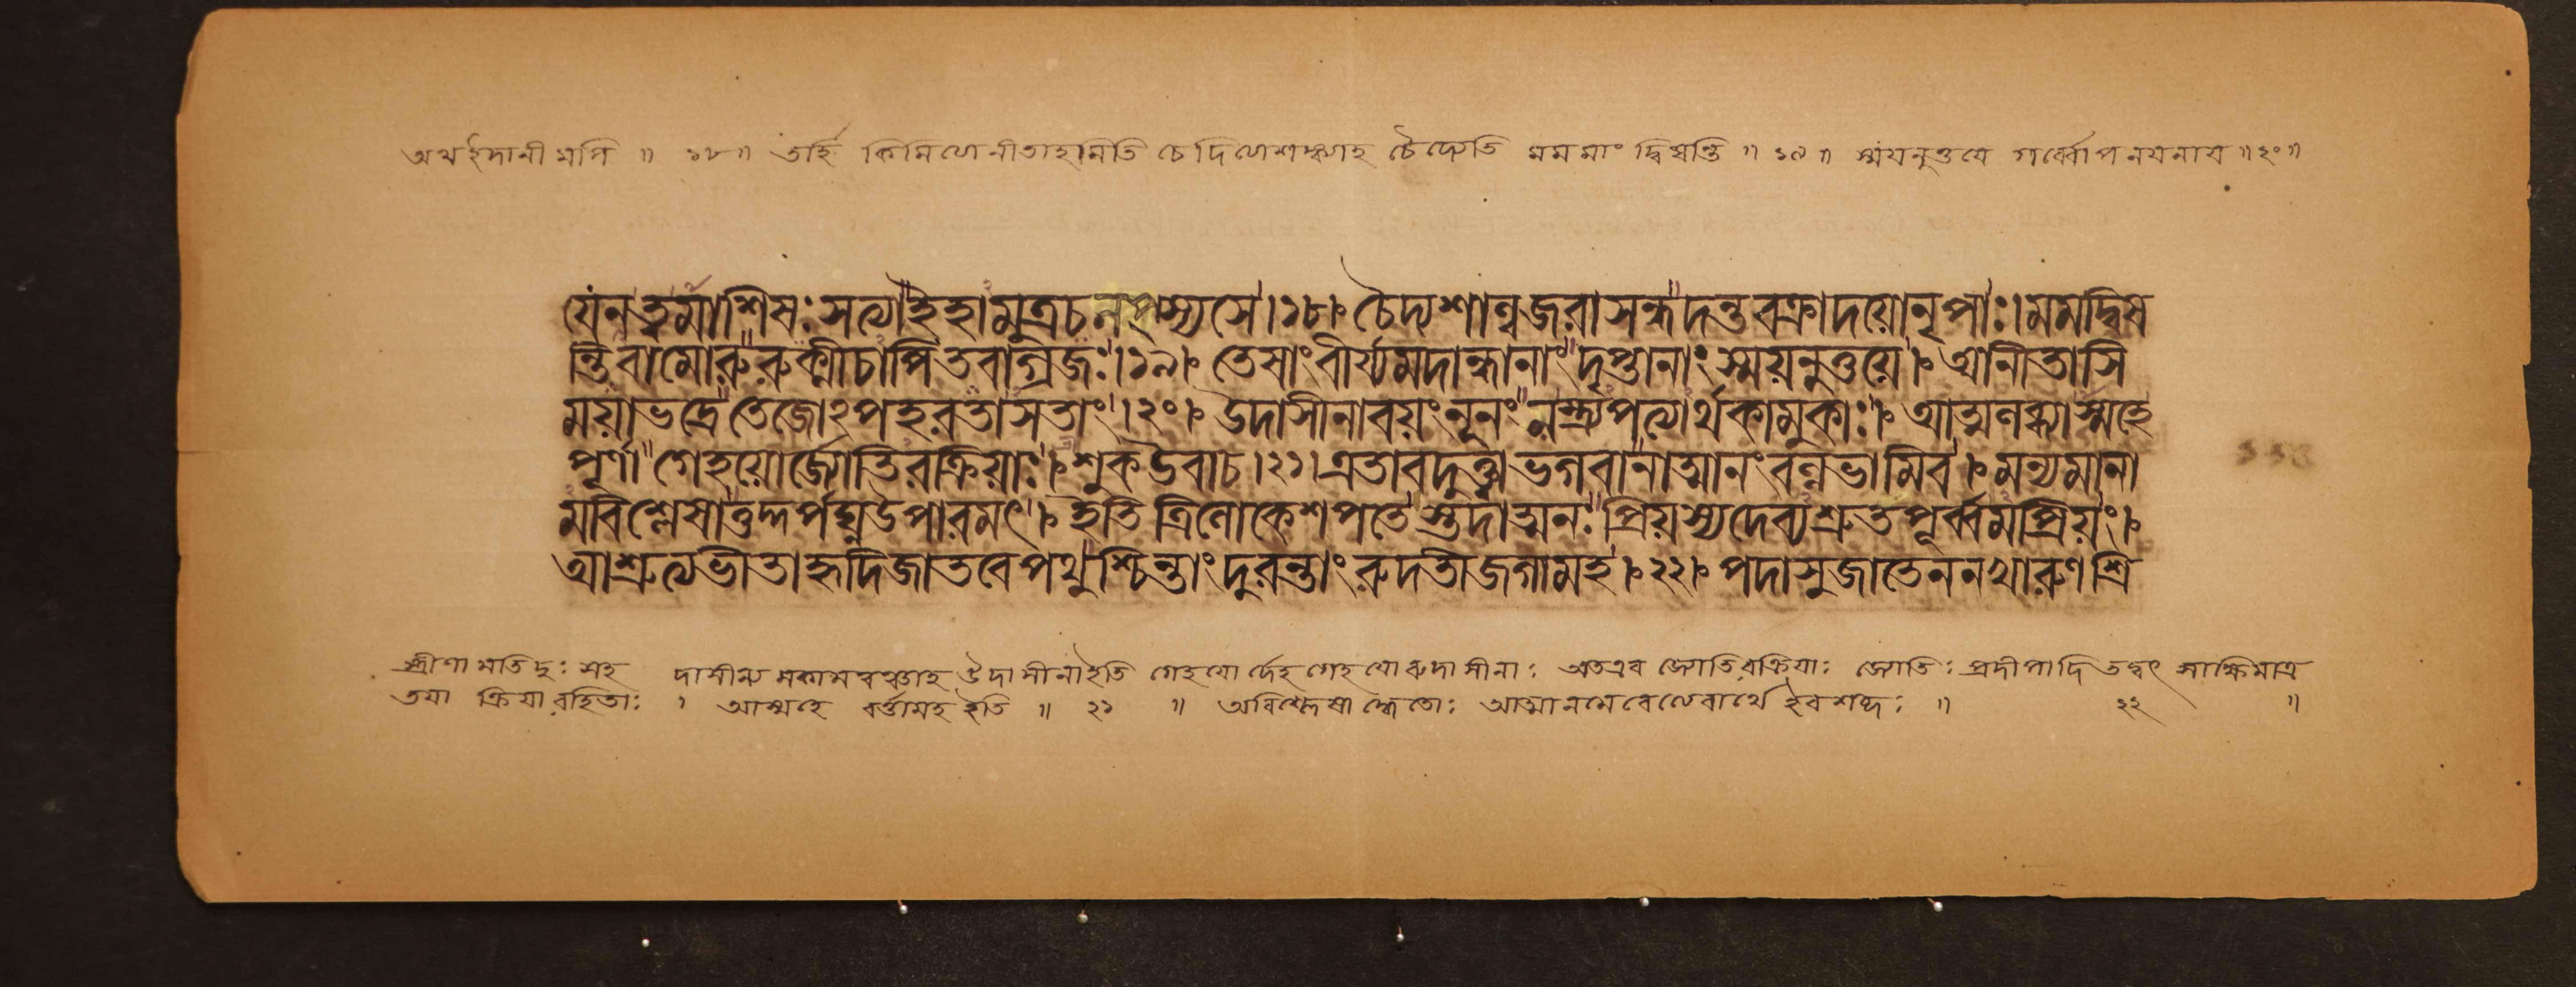 অথ ইদানীমপি ॥ ১৮ ॥ তর্হি কিমিত্যানীতাহমিতি চেদিত্যাশঙ্ক্যাহ চৈদ্যেতি মম মাং দ্বিষন্তি ॥ ১৯ ॥ স্ময়নুত্তয়ে গর্ব্বাপনয়নায় ॥ ২০ ॥
যেন ত্বমাশিষঃ সত্যা ইহামুত্র চ লপ্স্যসে । ১৮ । চৈদ্য শাল্ব জরাসন্ধ দন্তবক্রাদয়ো নৃপাঃ । মম দ্বিষ
ন্তি বামোরু রুক্মী চাপি তবাগ্রজঃ । ১৯ । তেষাং বীর্য্যমদান্ধানাং দৃপ্তানাং স্ময়নুত্তয়ে । আনীতাসি
ময়া ভদ্রে তেজোঽপহরতাসতাং । ২০ । উদাসীনা বয়ং নূনং ন স্ত্র্যপত্যার্থকামুকাঃ । আত্মলব্ধ্যাস্মহে
পূর্ণা গেহয়োর্জ্যোতিরক্রিয়াঃ । শুক উবাচ । ২১ । এতাবদুক্ত্বা ভগবানাত্মানং বল্লভামিব । মন্যমানা
মবিশ্লেষাত্তদ্দর্পঘ্ন উপারমৎ । ইতি ত্রিলোকেশপতেস্তদাত্মনঃ প্রিয়স্য দেব্যশ্রুতপূর্ব্বমপ্রিয়ং ।
আশ্রুত্য ভীতা হৃদি জাতবেপথুশ্চিন্তাং দুরন্তাং রুদতী জগাম হ । ২২ । পদা সুজাতেন নখারুণশ্রি
স্ত্রীণামতিদুঃসহ দাসীন্য মকামত্বঞ্চাহ উদাসীনা ইতি গেহয়োর্দেহগেহয়োরুদাসীনাঃ অতএব জ্যোতিরক্রিয়াঃ জ্যোতিঃ প্রদীপাদি তদ্বৎ সাক্ষিমাত্র
তয়া ক্রিয়ারহিতাঃ । আস্মহে বর্ত্তামহ ইতি ॥ ২১ ॥ অবিশ্লেষাদ্ধেতোঃ আত্মানমেবেত্যেবার্থে ইবশব্দঃ ॥ ২২ ॥